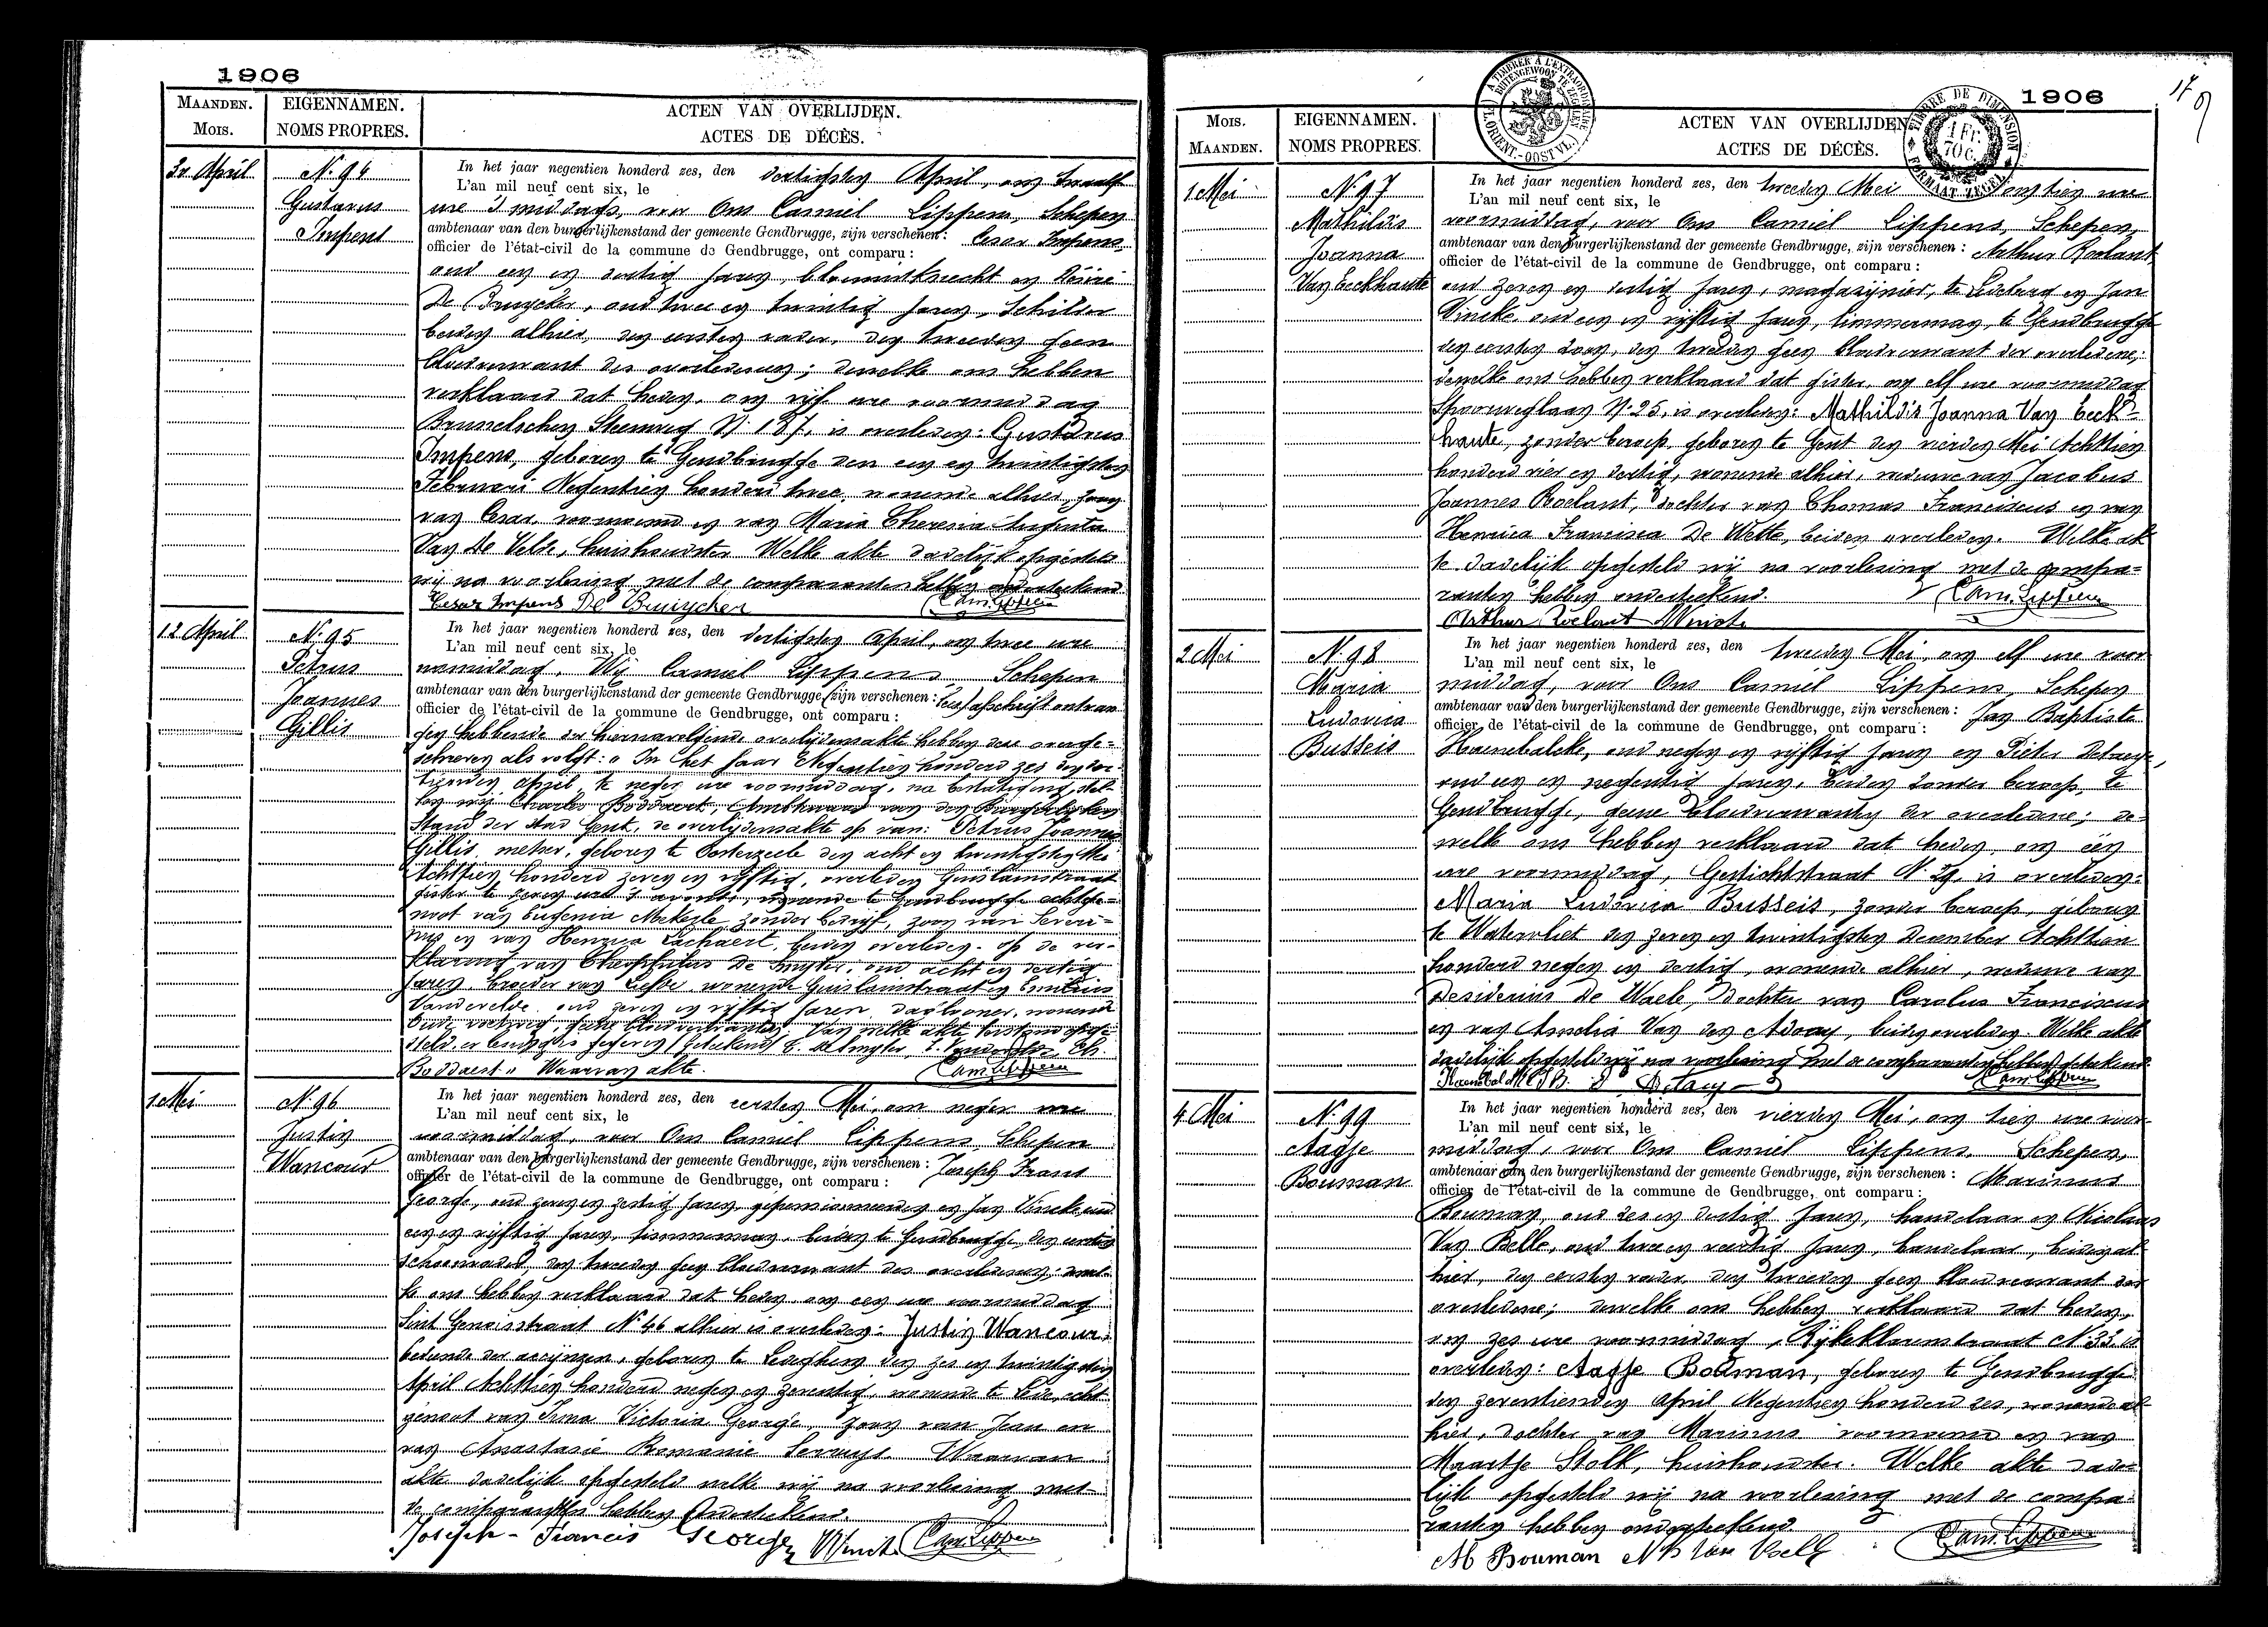 1906
MAANDEN. EIGENNAMEN. ACTEN VAN OVERLIJDEN.
Mois. NOMS PROPRES. ACTES DE DÉCÈS.
30 April N. 94 In het jaar negentien honderd zes, den dertigsten April, om twaalf
L'an mil neuf cent six, le
Gustavus ure 's middags, voor Ons Camiel Lippens, Schepen
Impens ambtenaar van den burgerlijkenstand der gemeente Gendbrugge, zijn verschenen: Cesar Impens
officier de l'état-civil de la commune de Gendbrugge, ont comparu:
oud een en dertig jaren, bloemistknecht en Désiré
De Bruycker, oud twee en twintig jaren, Schilder
beiden alhier, den eersten vader, den tweeden geen
bloedverwant des overledenen; dewelke ons hebben
verklaard dat heden, om vijf ure voormiddag
Brusselschen Steenweg N. 187, is overleden: Gustavus
Impens, geboren te Gendbrugge den een en twintigsten
Februari Negentien honderd twee, wonende alhier, zoon
van Cesar, voornoemd en van Maria Theresia Augusta
Van de Velde, huishoudster Welke akte dadelijk opgesteld
wij na voorlezing met de comparanten hebben onderteekend
Cesar Impens De Bruycker Cam. Lippens
12 April N. 95 In het jaar negentien honderd zes, den dertigsten April, om twee ure
L'an mil neuf cent six, le
Petrus namiddag, Wij Camiel Lippens Schepen
Joannes ambtenaar van den burgerlijkenstand der gemeente Gendbrugge, zijn verschenen: afschrift ontvan
officier de l'état-civil de la commune de Gendbrugge, ont comparu:
Gillis gen hebbende der hiernavolgende overlijdensakte hebben deze overge-
schreven als volgt: "In het jaar Negentien honderd zes den der-
tienden april te negen ure voormiddag, na bestatiging, stel-
len wij Charles Boddaert, Ambtenaar van den Burgerlijken
Stand der stad Gent, de overlijdensakte op van: Petrus Joannes
Gillis, metser, geboren te Oosterzeele den acht en twintigsten Mei
Achttien honderd zeven en vijftig, overleden Guislainstraat
gister te zeven ure 's avonds, wonende te Gendbrugge echtge-
noot van Eugenia zonder bedrijf, zoon van Severi-
nus en van Henrica Lachaert, beiden overleden. op de ver-
klaring van Theophilus De Smijter, oud acht en dertig
jaren, broeder van Liefde, wonende Guislainstraat en Emilius
Vandevelde oud zeven en vijftig jaren, daglooner, wonende
geen bloedverwanten. Van welke akte
(Geteekend) T. De Smijter, E. Vandevelde, Ch.
Boddaert" Waarvan akte. Cam. Lippens
1 Mei N. 96 In het jaar negentien honderd zes, den eersten Mei, om negen ure
L'an mil neuf cent six, le
Justin voormiddag, voor Ons Camiel Lippens Schepen
Wancour ambtenaar van den burgerlijkenstand der gemeente Gendbrugge, zijn verschenen: Joseph Frans
officier de l'état-civil de la commune de Gendbrugge, ont comparu:
George, oud zeven en zestig jaren, gepensionneerden en Jan Vincke oud
een en vijftig jaren, timmerman, beiden te Gendbrugge, den eersten
schoonvader, den tweeden geen bloedverwant des overledenen; dewel-
ke ons hebben verklaard dat heden, om een ure voormiddag
Sint Genoisstraat N. 46 alhier is overleden: Justin Wancour,
bediende der accijnzen, geboren te Ledeberg den zes en twintigsten
April Achttien honderd negen en zeventig, wonende te Lede, echt-
genoot van Irma Victoria George, zoon van Jean en
van Anastasie Romanie Serruys. Waarvan
akte dadelijk opgesteld welke wij na voorlezing met
de comparanten hebben Onderteekend.
Joseph-Francis George Vincke Cam. Lippens
A TIMBRER À L'EXTRAORDINAIRE
BUITENGEWOON TE ZEGELEN
(FL. ORIENT.-OOST VL.)
TIMBRE DE DIMENSION
1 FR. 70 C.
FORMAAT ZEGEL
1906
Mois. EIGENNAMEN. ACTEN VAN OVERLIJDEN
MAANDEN. NOMS PROPRES. ACTES DE DÉCÈS.
1 Mei N. 97 In het jaar negentien honderd zes, den tweeden Mei om tien ure
L'an mil neuf cent six, le
Mathildis voormiddag, voor Ons Camiel Lippens, Schepen,
Joanna ambtenaar van den burgerlijkenstand der gemeente Gendbrugge, zijn verschenen: Arthur Roelant
officier de l'état-civil de la commune de Gendbrugge, ont comparu:
Van Eeckhaute oud zeven en dertig jaren, magazijnier, te Ledeberg en Jan
Vincke, oud een en vijftig jaren, timmerman, te Gendbrugge
den eersten zoon, den tweeden geen bloedverwant der overledene;
dewelke ons hebben verklaard dat gister, om elf ure voormiddag
Spoorweglaan N. 25, is overleden: Mathildis Joanna Van Eeck-
haute, zonder beroep, geboren te Gent den vierden Mei Achttien
honderd vier en dertig, wonende alhier, weduwe van Jacobus
Joannes Roelant, dochter van Thomas Franciscus en van
Henrica Francisca De Wette, beiden overleden. Welke ak
te dadelijk opgesteld wij na voorlezing met de compa-
ranten hebben onderteekend. Cam. Lippens
Arthur Roelant Vincke
2 Mei N. 98 In het jaar negentien honderd zes, den tweeden Mei, om elf ure voor
L'an mil neuf cent six, le
Maria middag, voor Ons Camiel Lippens, Schepen
Ludovica ambtenaar van den burgerlijkenstand der gemeente Gendbrugge, zijn verschenen: Jan Baptiste
officier de l'état-civil de la commune de Gendbrugge, ont comparu:
Busseis Haenebalcke, oud negen en vijftig jaren en Pieter
oud een en negentig jaren, beiden zonder beroep, te
Gendbrugge, geene bloedverwanten der overledene; de-
welke ons hebben verklaard dat heden, om één
ure voormiddag, Gestichtstraat N. 29, is overleden:
Maria Ludovica Busseis, zonder beroep, geboren
te Watervliet den zeven en twintigsten December Achttien
honderd negen en dertig, wonende alhier, weduwe van
Desiderius De Waele, dochter van Carolus Franciscus
en van Amelia Van den beiden overleden. Welke akte
dadelijk opgesteld wij na voorlezing met de comparanten hebben geteekend.
Cam. Lippens
4 Mei N. 99 In het jaar negentien honderd zes, den vierden Mei, om tien ure voor-
L'an mil neuf cent six, le
Aagje middag, voor Ons Camiel Lippens, Schepen,
Bouman ambtenaar van den burgerlijkenstand der gemeente Gendbrugge, zijn verschenen: Marinus
officier de l'état-civil de la commune de Gendbrugge, ont comparu:
Bouman, oud zes en dertig jaren, handelaar en Nicolaas
Van Belle, oud twee en veertig jaren, handelaar, beiden al-
hier, den eersten vader, den tweeden geen bloedverwant der
overledene; dewelke ons hebben verklaard dat heden,
om zes ure voormiddag, Rijkeklarenstraat N. 33 is
overleden: Aagje Bouman, geboren te Gendbrugge
den zeventienden April Negentien honderd zes, wonende al-
hier, dochter van Marinus voornoemd en van
Maartje Stolk, huishoudster. Welke akte dade-
lijk opgesteld wij na voorlezing met de compa-
ranten hebben onderteekend.
M Bouman N Van Belle Cam. Lippens